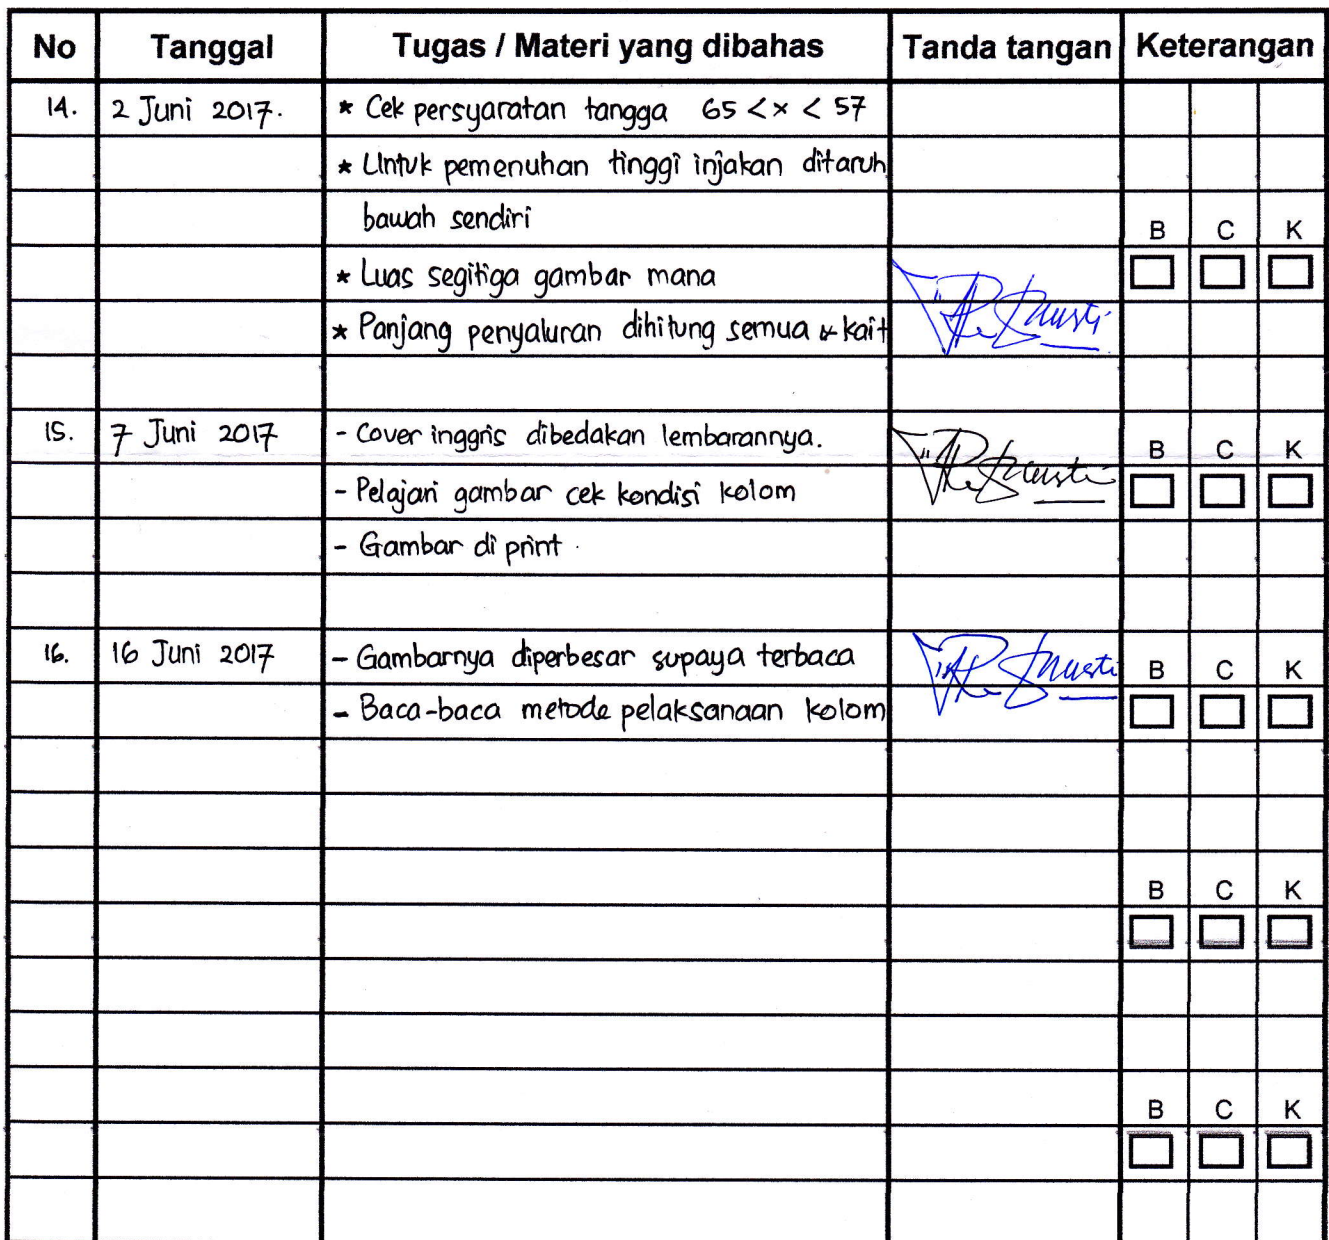 No Tanggal Tugas / Materi yang dibahas Tanda tangan Keterangan
14. 2 Juni 2017. * Cek persyaratan tangga 65 < x < 57
* Untuk pemenuhan tinggi injakan ditaruh
bawah sendiri
B C K
* Luas segitiga gambar mana
* Panjang penyaluran dihitung semua & kait
15. 7 Juni 2017 - Cover inggris dibedakan lembarannya.
B C K
- Pelajari gambar cek kondisi kolom
- Gambar di print
16. 16 Juni 2017 - Gambarnya diperbesar supaya terbaca
B C K
- Baca-baca metode pelaksanaan kolom
B C K
B C K